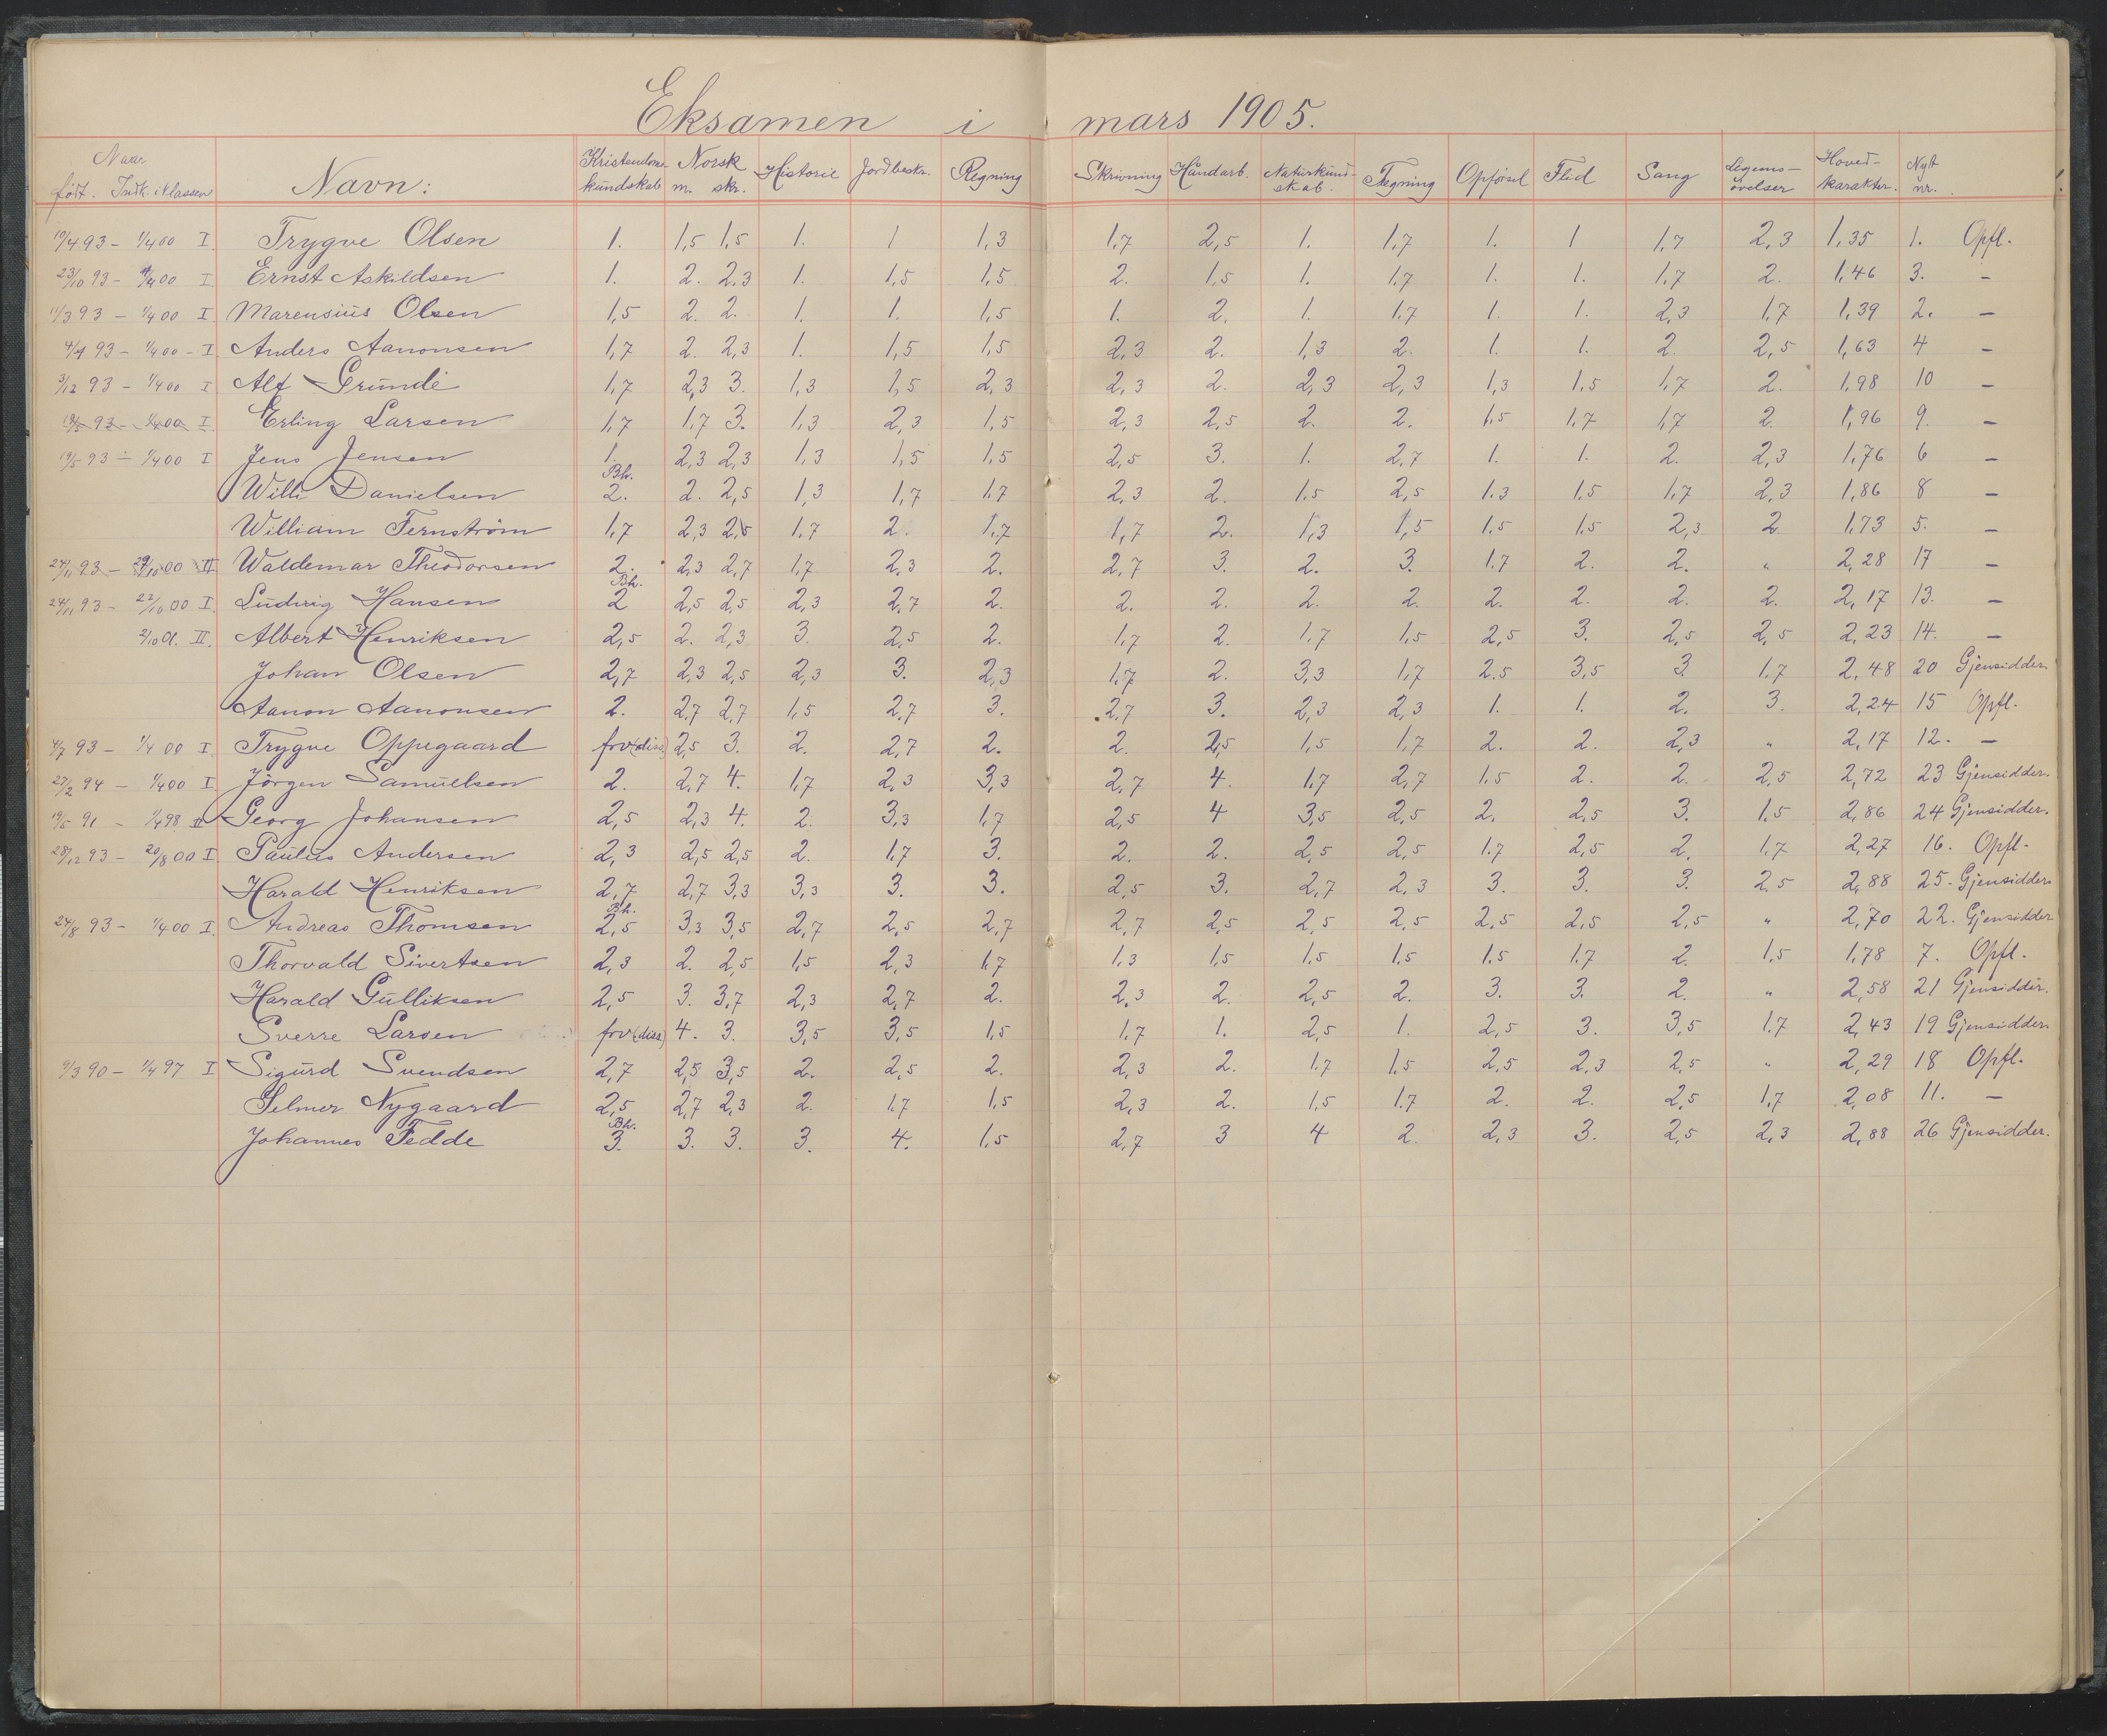 Eksamen i mars 1905.
Naar født. Indk. i Klassen Navn: Kristendoms-kundskab Norsk m. skr. Historie Jordbeskr. Regning Skrivning Håndarb. Naturkund-skab. Tegning Opførsel Flid Sang Legems-øvelser Hoved-karakter. Nyt nr.
10/4 93 - 1/4 00 I. Trygve Olsen 1. 1,5 1,5 1. 1 1,3 1,7 2,5 1. 1,7 1. 1 1,7 2,3 1,35 1. Opfl.
23/10 93 - 1/4 00 I Ernst Askildsen 1. 2. 2,3 1. 1,5 1,5 2. 1,5 1. 1,7 1. 1. 1,7 2. 1,46 3. -
11/3 93 - 1/4 00 I Marensius Olsen 1,5 2. 2. 1. 1. 1,5 1. 2. 1. 1,7 1. 1. 2,3 1,7 1,39 2. -
4/9 93 - 1/4 00 - I Anders Aanonsen 1,7 2. 2,3 1. 1,5 1,5 2,3 2. 1,3 2. 1. 1. 2. 2,5 1,63 4 -
3/12 93 - 1/4 00 I Alf Grunde 1,7 2,3 3. 1,3 1,5 2,3 2,3 2. 2,3 2,3 1,3 1,5 1,7 2. 1,98 10 -
19/5 93 - 1/4 00 I. Erling Larsen 1,7 1,7 3. 1,3 2,3 1,5 2,3 2,5 2. 2. 1,5 1,7 1,7 2. 1,96 9. -
19/5 93 - 1/4 00 I Jens Jensen 1. 2,3 2,3 1,3 1,5 1,5 2,5 3. 1. 2,7 1. 1. 2. 2,3 1,76 6 -
Willi Danielsen Bh. 2. 2. 2,5 1,3 1,7 1,7 2,3 2. 1,5 2,5 1,3 1,5 1,7 2,3 1,86 8 -
William Fernström 1,7 2,3 2,5 1,7 2. 1,7 1,7 2. 1,3 1,5 1,5 1,5 2,3 2 1,73 5. -
24/11 93 - 29/10 00 II Waldemar Theodorsen 2. 2,3 2,7 1,7 2,3 2. 2,7 3. 2. 3. 1,7 2. 2. " 2,28 17 -
24/11 93 - 22/10 00 I. Ludvig Hansen Bh. 2 2,5 2,5 2,3 2,7 2. 2. 2. 2. 2. 2. 2. 2. 2. 2,17 13. -
2/10 01. II. Albert Henriksen 2,5 2. 2,3 3. 2,5 2. 1,7 2. 1,7 1,5 2,5 3. 2,5 2,5 2,23 14. -
Johan Olsen 2,7 2,3 2,5 2,3 3. 2,3 1,7 2. 3,3 1,7 2,5 3,5 3. 1,7 2,48 20 Gjensidder.
Aanon Aanonsen 2. 2,7 2,7 1,5 2,7 3. 2,7 3. 2,3 2,3 1. 1. 2. 3. 2,24 15 Opfl.
4/7 93 - 1/4 00 I. Trygve Oppegaard frv(diss) 2,5 3. 2. 2,7 2. 2. 2,5 1,5 1,7 2. 2. 2,3 " 2,17 12. -
27/2 94 - 1/4 00 I Jörgen Samuelsen 2. 2,7 4. 1,7 2,3 3,3 2,7 4. 1,7 2,7 1,5 2. 2. 2,5 2,72 23 Gjensidder.
19/5 91 - 1/4 98 II Georg Johansen 2,5 2,3 4. 2. 3,3 1,7 2,5 4 3,5 2,5 2. 2,5 3. 1,5 2,86 24 Gjensidder.
28/12 93 - 20/8 00 I Paulus Andersen 2,3 2,5 2,5 2. 1,7 3. 2. 2. 2,5 2,5 1,7 2,5 2. 1,7 2,27 16. Opfl.
Harald Henriksen 2,7 2,7 3,3 3,3 3. 3. 2,5 3. 2,7 2,3 3. 3. 3. 2,5 2,88 25. Gjensidder.
24/8 93 - 1/4 00 I. Andreas Thomsen Bh. 2,5 3,3 3,5 2,7 2,5 2,7 2,7 2,5 2,5 2,5 2,5 2,5 2,5 " 2,70 22. Gjensidder.
Thorvald Sivertsen 2,3 2. 2,5 1,5 2,3 1,7 1,3 1,5 1,5 1,5 1,5 1,7 2. 1,5 1,78 7. Opfl.
Harald Gulliksen 2,5 3. 3,7 2,3 2,7 2. 2,3 2. 2,5 2. 3. 3. 2. " 2,58 21 Gjensidder.
Sverre Larsen frv(diss) 4. 3. 3,5 3,5 1,5 1,7 1. 2,5 1. 2,5 3. 3,5 1,7 2,43 19 Gjensidder.
9/3 90 - 1/4 97 I Sigurd Svendsen 2,7 2,5 3,5 2. 2,5 2. 2,3 2. 1,7 1,5 2,5 2,3 2,5 " 2,29 18 Opfl.
Selmer Nygaard 2,5 2,7 2,3 2. 1,7 1,5 2,3 2. 1,5 1,7 2. 2. 2,5 1,7 2,08 11. -
Johannes Fedde Bh. 3. 3. 3. 3. 4. 1,5 2,7 3 4 2. 2,3 3. 2,5 2,3 2,88 26 Gjensidder.